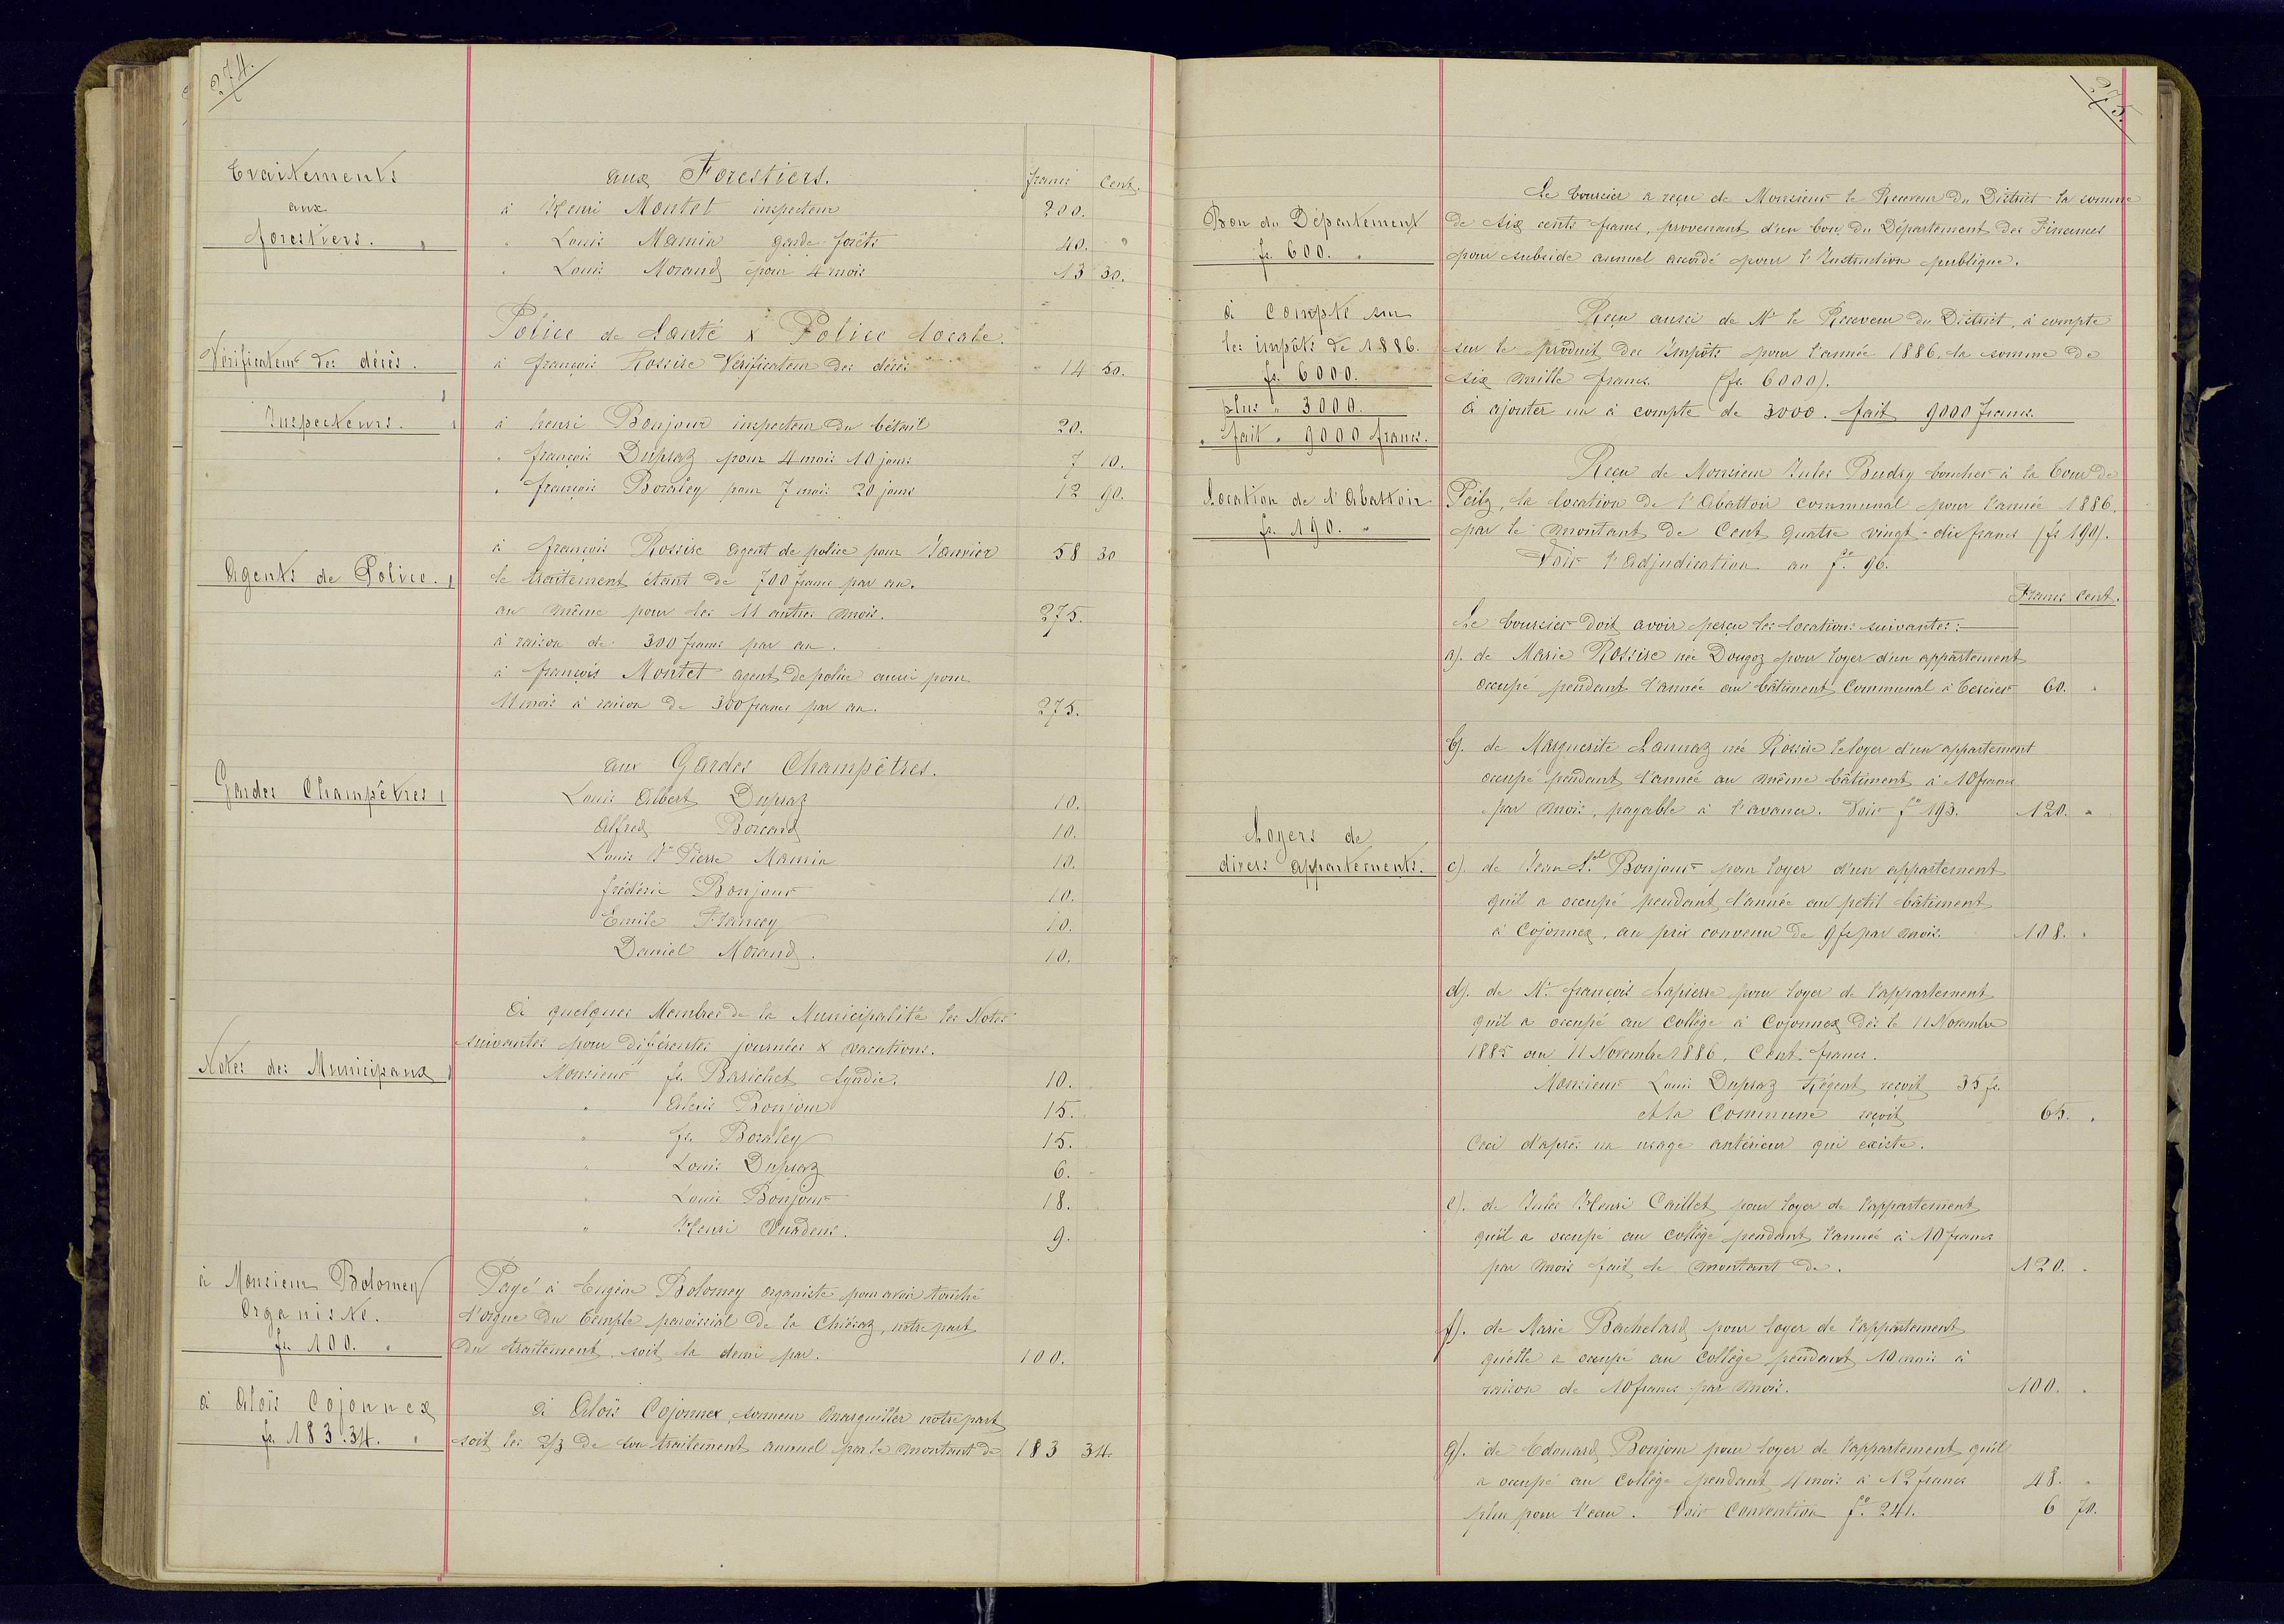 274.
Traitements
aux
forestiers.
aux Forestiers.
francs Cent.
à Henri Montet inspecteur 200.
" Louis Mamin garde-forêts 40. "
" Louis Morand pour 4 mois 13 30.
Police de Santé & Police locale.
Vérificateur des décès.
à françois Rossire Vérificateur des décès 14 50.
Inspecteurs.
à henri Bonjour inspecteur du bétail 20.
" françois Dupraz pour 4 mois 10 jours 7 10.
" françois Boraley pour 7 mois 20 jours 12 90.
Agents de Police.
à françois Rossire agent de police pour Janvier 58 30
le traitement étant de 700 francs par an.
au même pour les 11 autres mois. 275.
à raison de 300 francs par an.
à françois Montet agent de police aussi pour
11 mois à raison de 300 francs par an. 275.
Gardes Champêtres
aux Gardes Champêtres.
Louis Albert Dupraz 10.
Alfred Borcard 10.
Louis Jn Pierre Mamin 10.
frédéric Bonjour 10.
Emile Francey 10.
Daniel Morand. 10.
Notes des Municipaux
à quelques Membres de la Municipalité les Notes
suivantes pour différentes journées & vacations.
Monsieur fs. Barichet Syndic. 10.
" Alexis Bonjour 15.
" fs. Boraley 15.
" Louis Dupraz 6.
" Louis Bonjour 18.
" Henri Vuadens. 9.
à Monsieur Bolomey
Organiste.
fr. 100. "
Payé à Eugène Bolomey organiste pour avoir touché
l'orgue du temple paroissial de la Chiésaz, notre part
du traitement, soit la demi par. 100.
à Aloïs Cojonnex
fr. 183.34. "
à Aloïs Cojonnex, sonneur marguiller notre part
soit les 2/3 de son traitement annuel par le montant de 183 34.
275.
Bon du Département
fr. 600. "
Le boursier a reçu de Monsieur le Receveur du District la somme
de six cents francs, provenant d'un bon du Département des Finances
pour subside annuel accordé pour l'Instruction publique.
à compte sur
les impôts de 1886.
fr. 6000.
plus " 3000.
" fait " 9000 francs.
Reçu aussi de Mr le Receveur du District, à compte
sur le produit des Impôts pour l'année 1886. la somme de
six mille francs. (fr. 6000).
à ajouter un à compte de 3000. fait 9000 francs.
Location de l'Abattoir
fr. 190. "
Reçu de Monsieur Jules Budry boucher à la Tour de
Peilz, la location de l'Abattoir communal pour l'année 1886.
par le montant de Cent quatre vingt-dix francs (fr 190).
Voir l'Adjudication au fo. 96.
Francs Cent.
Loyers de
divers appartements.
Le boursier doit avoir perçu les locations suivantes:
a). de Marie Rossire née Dougoz pour loyer d'un appartement
occupé pendant l'année au bâtiment Communal à Tercier 60. "
b). de Marguerite Lannaz née Rossire le loyer d'un appartement
occupé pendant l'année au même bâtiment à 10 francs
par mois, payable à l'avance. Voir fo 193. 120. "
c). de Jean Sel. Bonjour pour loyer d'un appartement
qu'il a occupé pendant l'année au petit bâtiment
à Cojonnex, au prix convenu de 9 fr par mois. 108. "
d). de Mr. françois Lapierre pour loyer de l'appartement
qu'il a occupé au Collège à Cojonnex dès le 11 Novembre
1885 au 11 Novembre 1886. Cent francs.
Monsieur Louis Dupraz Régent reçoit 35 fr
et la Commune reçoit 65. "
Ceci d'après un usage antérieur qui existe.
e). de Jules Henri Caillet pour loyer de l'appartement
qu'il a occupé au Collège pendant l'année à 10 francs
par mois fait le montant de. 120. "
f). de Marie Bachelard pour loyer de l'appartement
qu'elle a occupé au Collège pendant 10 mois à
raison de 10 francs par mois. 100. "
g). de Edouard Bonjour pour loyer de l'appartement qu'il
a occupé au Collège pendant 4 mois à 12 francs 48. "
plus pour l'eau. Voir Convention fo. 241. 6 70.